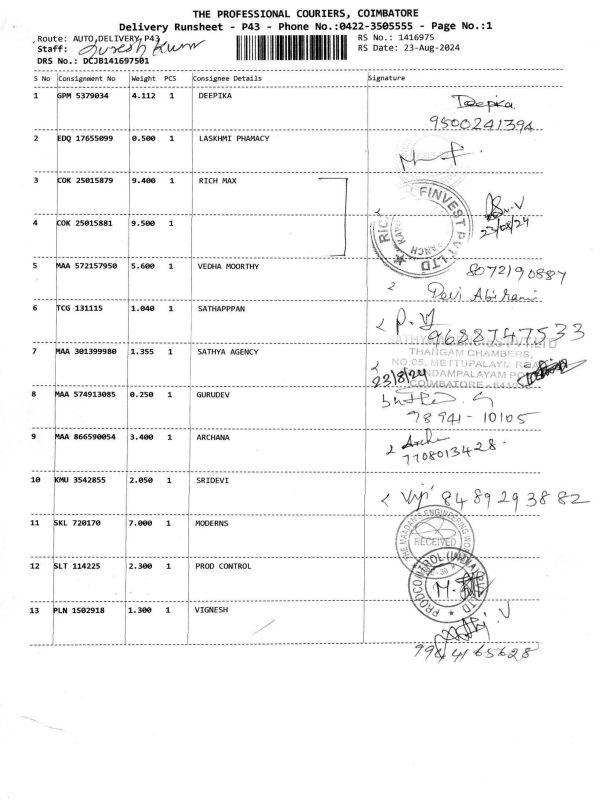 THE PROFESSIONAL COURIERS, COIMBATORE
Delivery Runsheet - P43 - Phone No.:0422-3505555 - Page No.:1
Route: AUTO,DELIVERY,P43
RS No.: 1416975
Staff: Suresh Kumar
RS Date: 23-Aug-2024
DRS No.: DCJB141697501
S No Consignment No Weight PCS Consignee Details Signature
1 GPM 5379034 4.112 1 DEEPIKA Deepika
9500241394
2 EDQ 17655099 0.500 1 LASKHMI PHAMACY
3 COK 25015879 9.400 1 RICH MAX
FINVEST PVT LTD
23/08/24
4 COK 25015881 9.500 1
5 MAA 572157950 5.600 1 VEDHA MOORTHY 8072190887
Devi Abirami
6 TCG 131115 1.040 1 SATHAPPPAN P. VJ
9688747533
7 MAA 301399980 1.355 1 SATHYA AGENCY
THANGAM CHAMBERS,
NO.05, METTUPALAYM ROAD
23/8/24
COIMBATORE
8 MAA 574913085 0.250 1 GURUDEV
98941-10105
9 MAA 866590054 3.400 1 ARCHANA Archa
7708013428
10 KMU 3542855 2.050 1 SRIDEVI Viji 8489293882
11 SKL 720170 7.000 1 MODERNS
RECEIVED
12 SLT 114225 2.300 1 PROD CONTROL
13 PLN 1502918 1.300 1 VIGNESH
9964165628